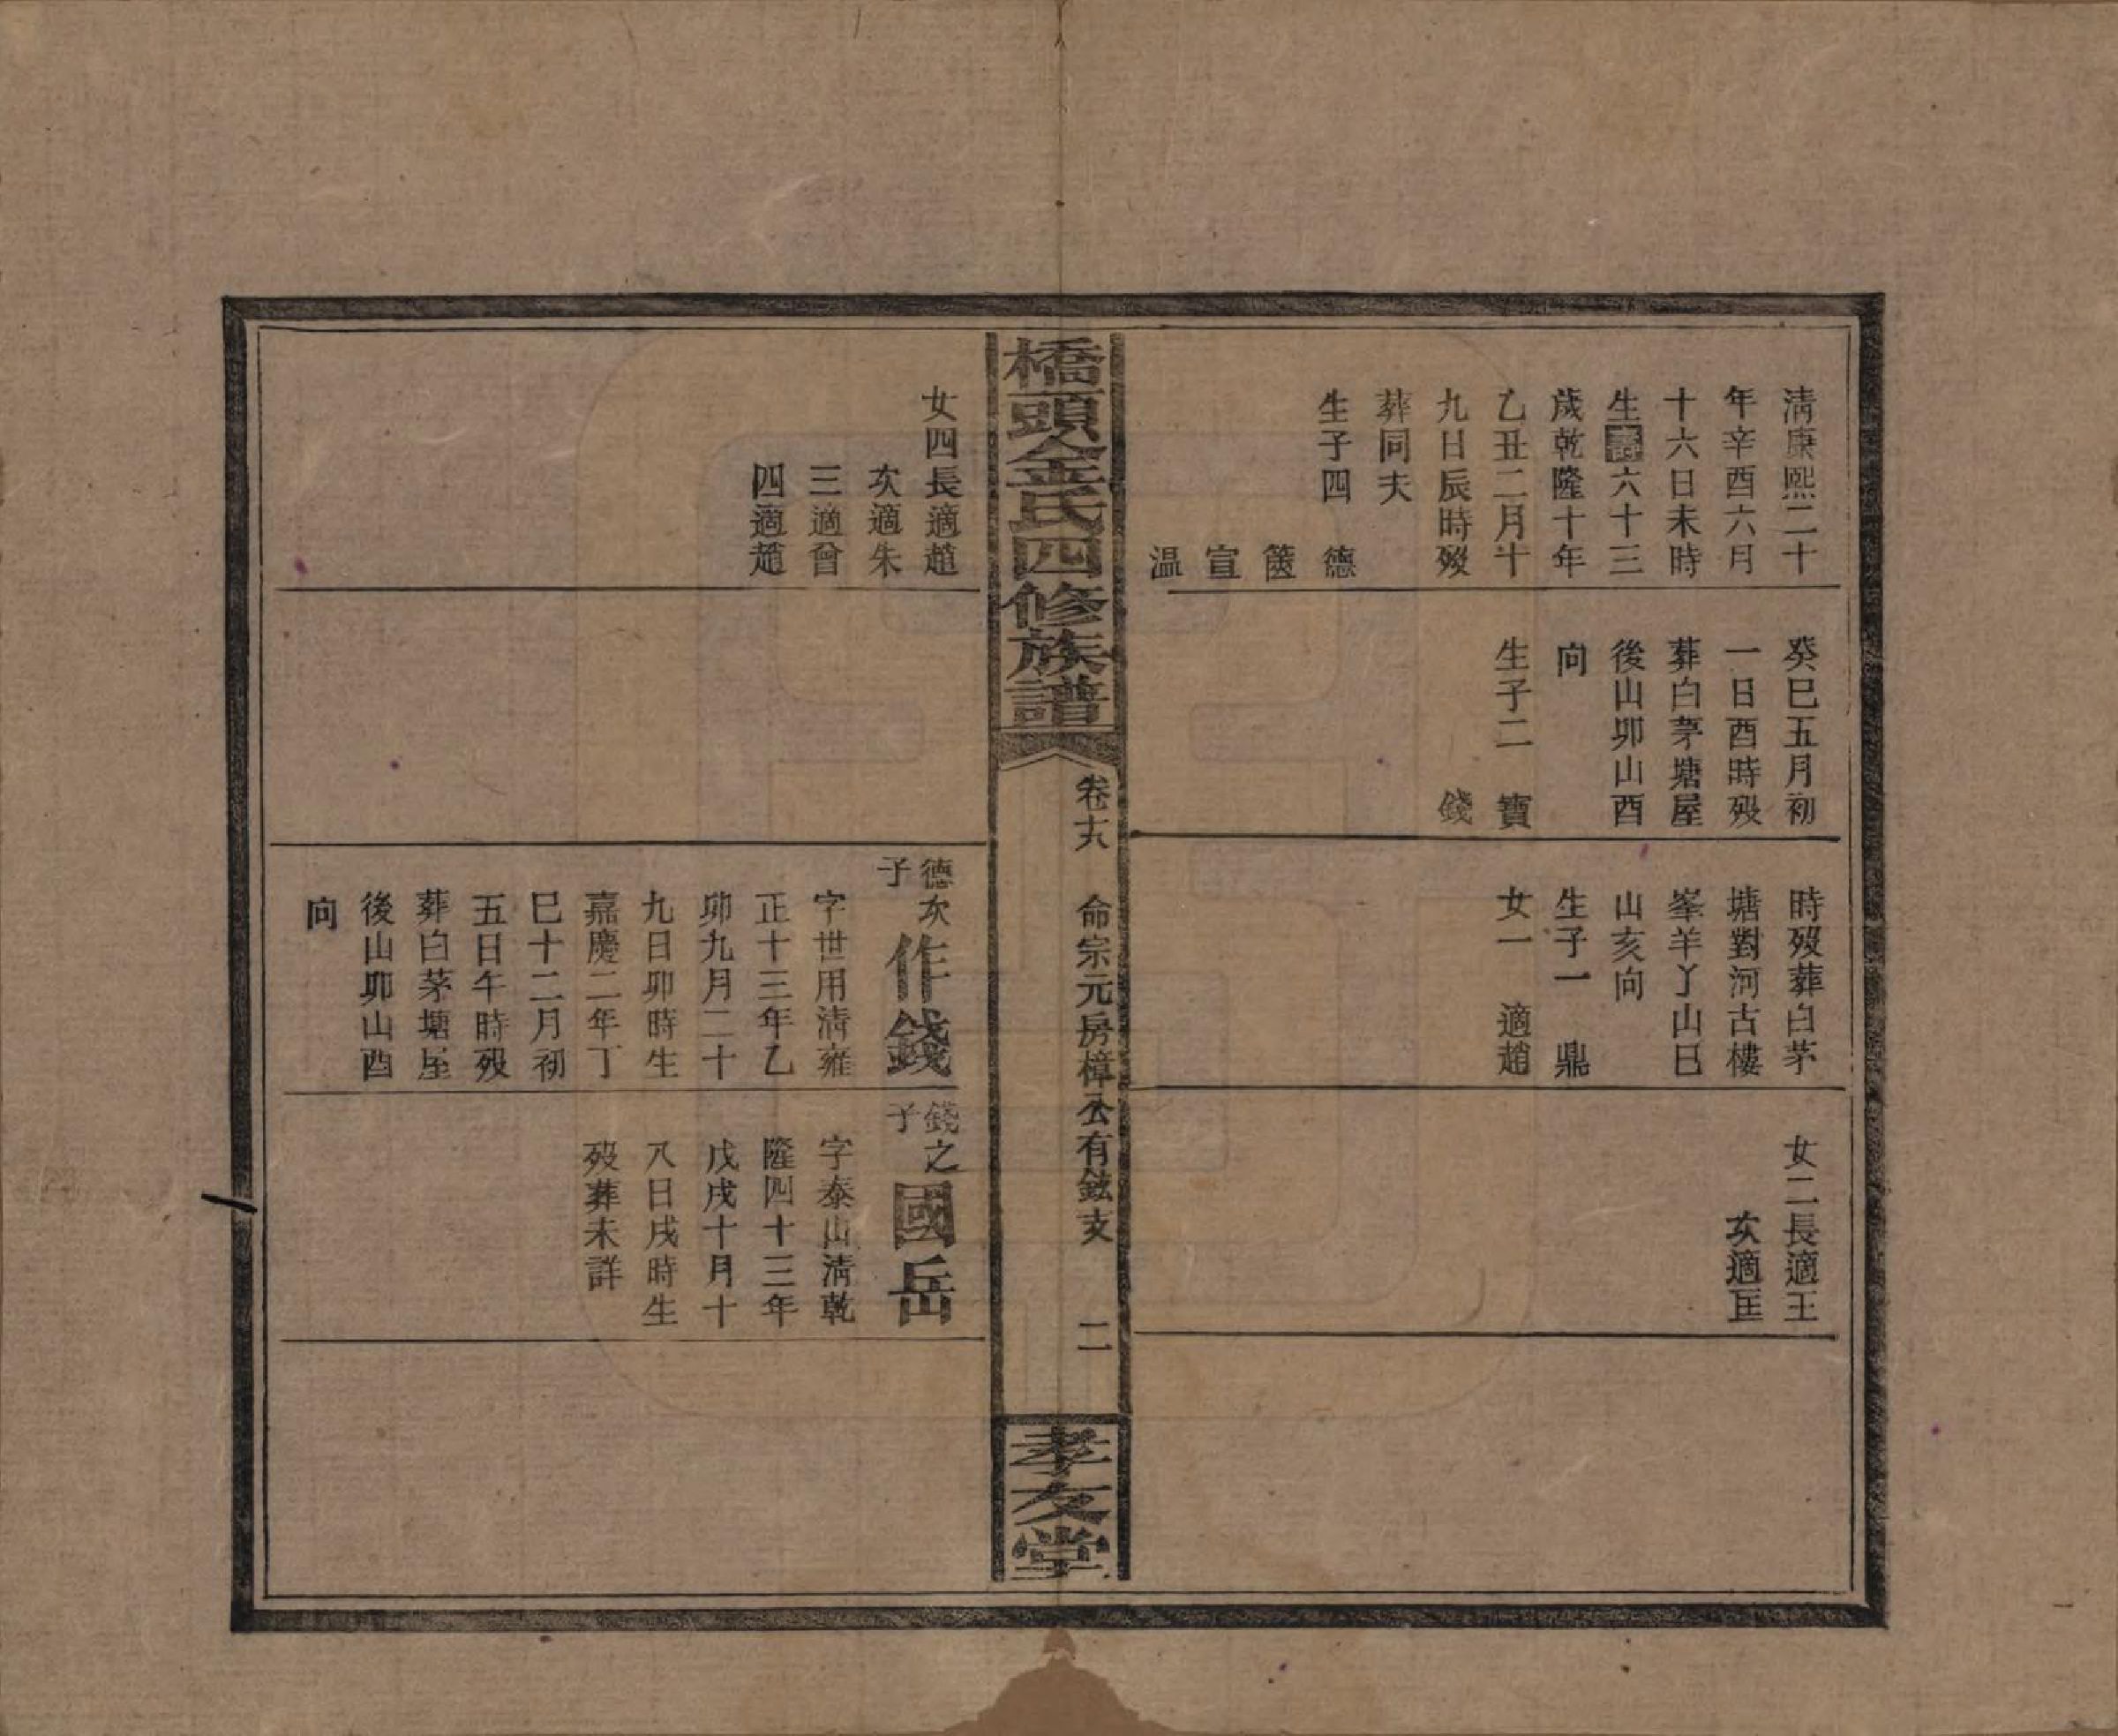 清康熙二十
年辛酉六月
十六日未時
生壽六十三
歲乾隆十年
乙丑二月十
九日辰時歿
葬同夫
生子四 德
篋
宣
温
癸巳五月初
一日酉時歿
葬白茅塘屋
後山卯山酉
向
生子二 寶
錢
時歿葬白茅
塘對河古樓
峯羊丫山巳
山亥向
生子一 鼎
女一 適趙
女二長適王
次適匡
橋頭金氏四修族譜
卷十六 命宗元房樟公有鉉支 二
孝友堂
女四長適趙
次適朱
三適曾
四適趙
德次子作錢
字世用清雍
正十三年乙
卯九月二十
九日卯時生
嘉慶二年丁
巳十二月初
五日午時歿
葬白茅塘屋
後山卯山酉
向
錢之子國岳
字泰山清乾
隆四十三年
戊戌十月十
八日戌時生
歿葬未詳